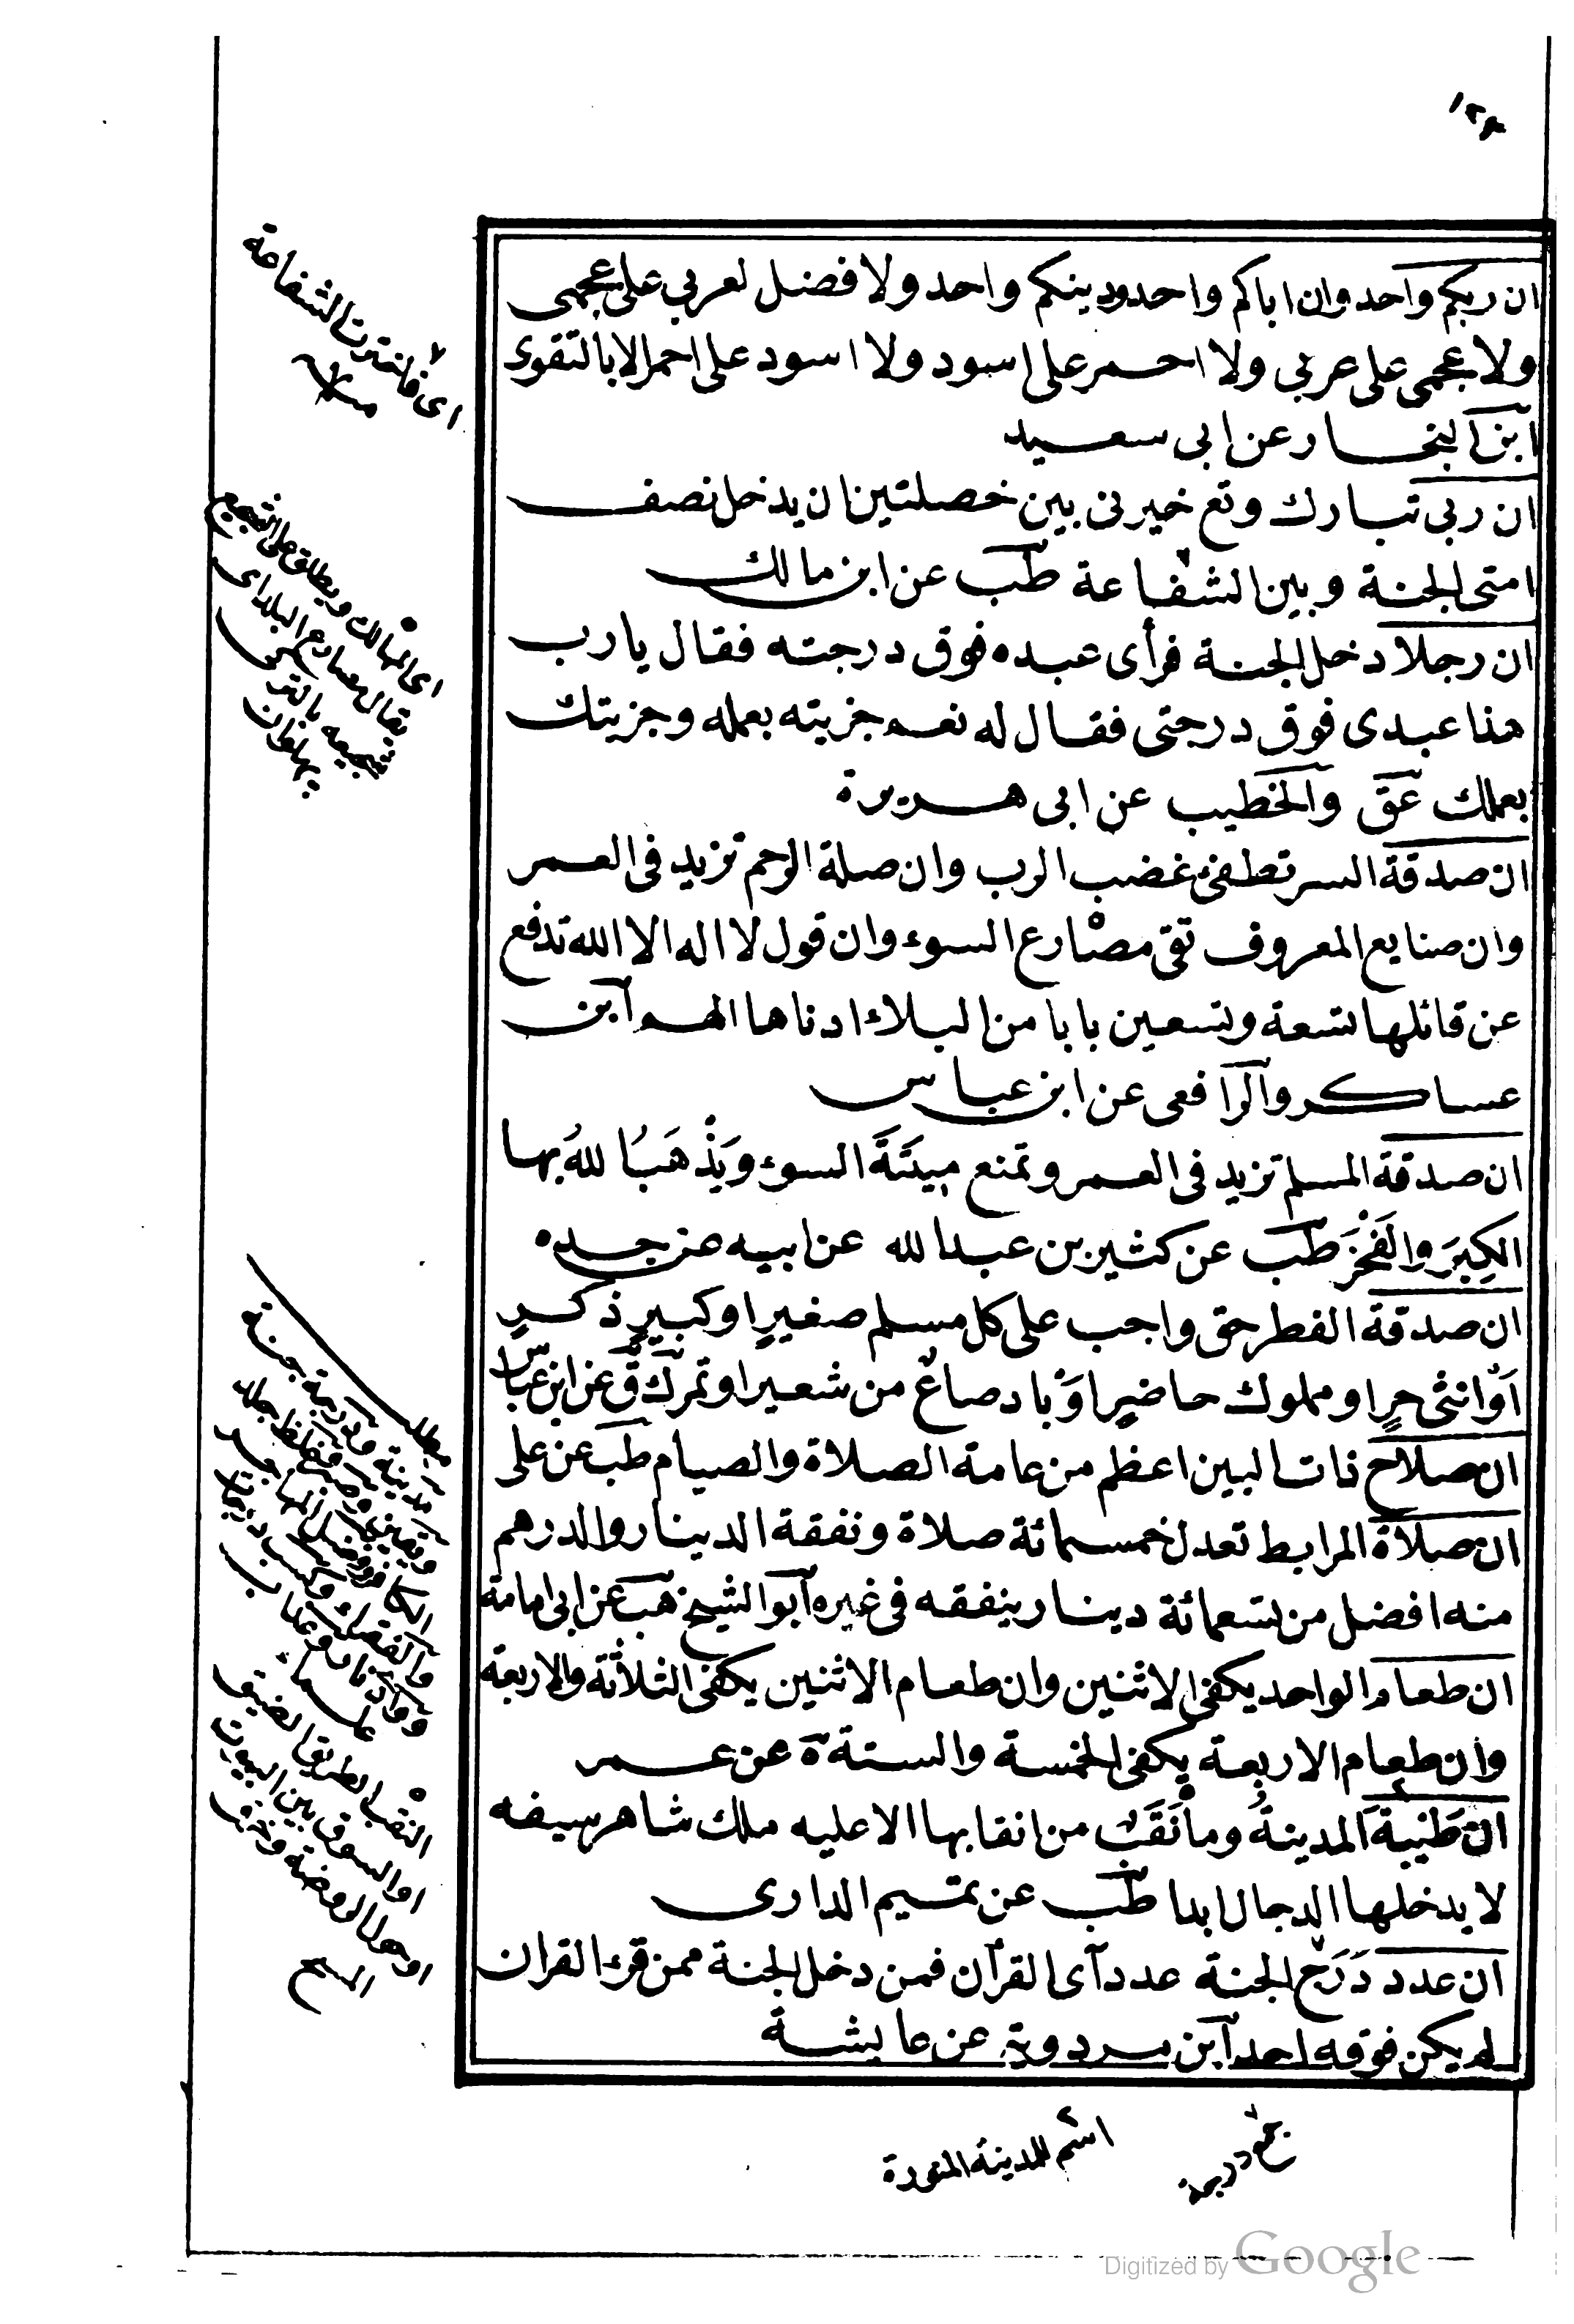 ١٢٨
ان ربكم واحد وان اباكم واحد ودينكم واحد ولا فضل لعربي على عجمى
ولا عجمى على عربي ولا احمر على اسود ولا اسود على احمر الا بالتقوى
ابن النجار عن ابى سعيد
ان ربى تبارك وتع خيرنى بين خصلتين ان يدخل نصف
امتى الجنة وبين الشفاعة طب عن ابن مالك
ان رجلا دخل الجنة فرأى عبده فوق درجته فقال يا رب
هذا عبدى فوق درجتى فقال له نعم جزيته بعمله وجزيتك
بعملك عق والخطيب عن ابى هريرة
ان صدقة السر تطفئ غضب الرب وان صلة الرحم تزيد فى العمر
وان صنايع المعروف تقى مصارع السوء وان قول لا اله الا الله تدفع
عن قائلها تسعة وتسعين بابا من البلاء ادناها الهم ابن
عساكر والرافعى عن ابن عباس
ان صدقة المسلم تزيد فى العمر وتمنع ميتَةَ السوء ويَذْهَبُ اللهُ بها
الكِبرَ والفَخْرَ طب عن كثير بن عبد الله عن ابيه عن جده
ان صدقة الفطر حق واجب على كل مسلم صغيرٍ او كبيرٍ ذكرٍ
اَوْ انثى حرٍ او مملوك حاضرٍ اَوْ باد صاعٌ من شعير او تمر ك ق عن ابن عباس
ان صلاح ذات البين اعظم من عامة الصلاة والصيام طب عن على
ان صلاة المرابط تعدل خمسمائة صلاة ونفقة الدينار والدرهم
منه افضل من تسعمائة دينار ينفقه فى غيره ابو الشيخ هب عن ابى امامة
ان طعام الواحد يكفى الاثنين وان طعام الاثنين يكفى الثلاثة والاربعة
وان طعام الاربعة يكفى الخمسة والستة ة عن عمر
ان طَيْبةَ المدينةُ وما نَقَبٌ من انقابها الا عليه ملك شاهر سيفه
لا يدخلها الدجال ابدا طب عن تميم الدارى
ان عدد دَرَج الجنة عدد آى القرآن فمن دخل الجنة ممن قرء القران
لم يكن فوقه احد ابن مردوية عن عايشة
اى فاخترت الشفاعة
اى المهالك ويطلق على الشجيع
يقال مصارع البلد اى
شجيعه بالتركى
پهلوان
مطلب
النقب الطريق الضيق
او السوق بين البيوت
او هوا الروضة
جمع درجة
اسم للمدينة المنورة
Digitized by Google